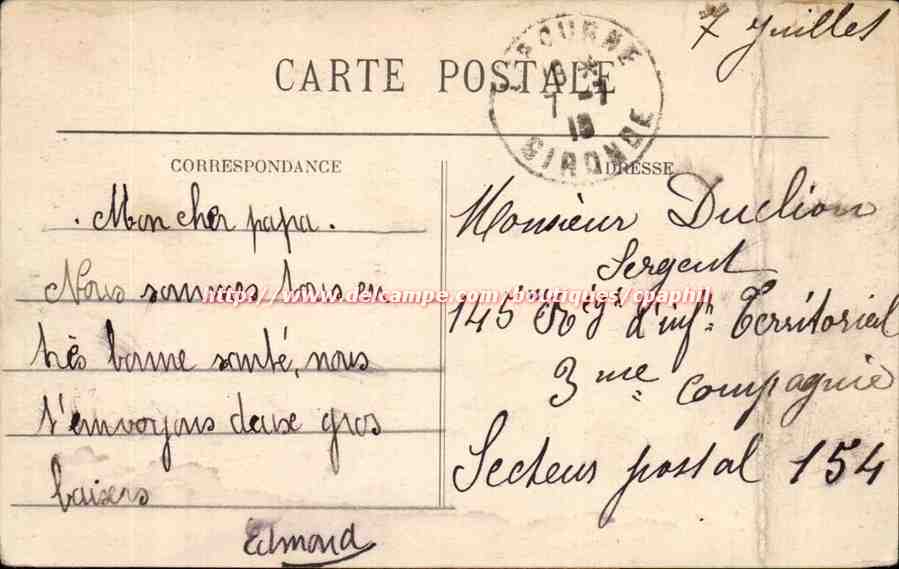 7 Juillet
CARTE POSTALE
LIBOURNE
7 - 7
15
GIRONDE
CORRESPONDANCE
ADRESSE
Mon cher papa.
Nous sommes tous en
très bonne santé, nous
t'envoyons deux gros
baisers
Edmond
Monsieur Duclion
Sergent
145ème Régt d'infie Territorial
3me compagnie
Secteur postal 154
http://www.delcampe.com/boutiques/cpaphil